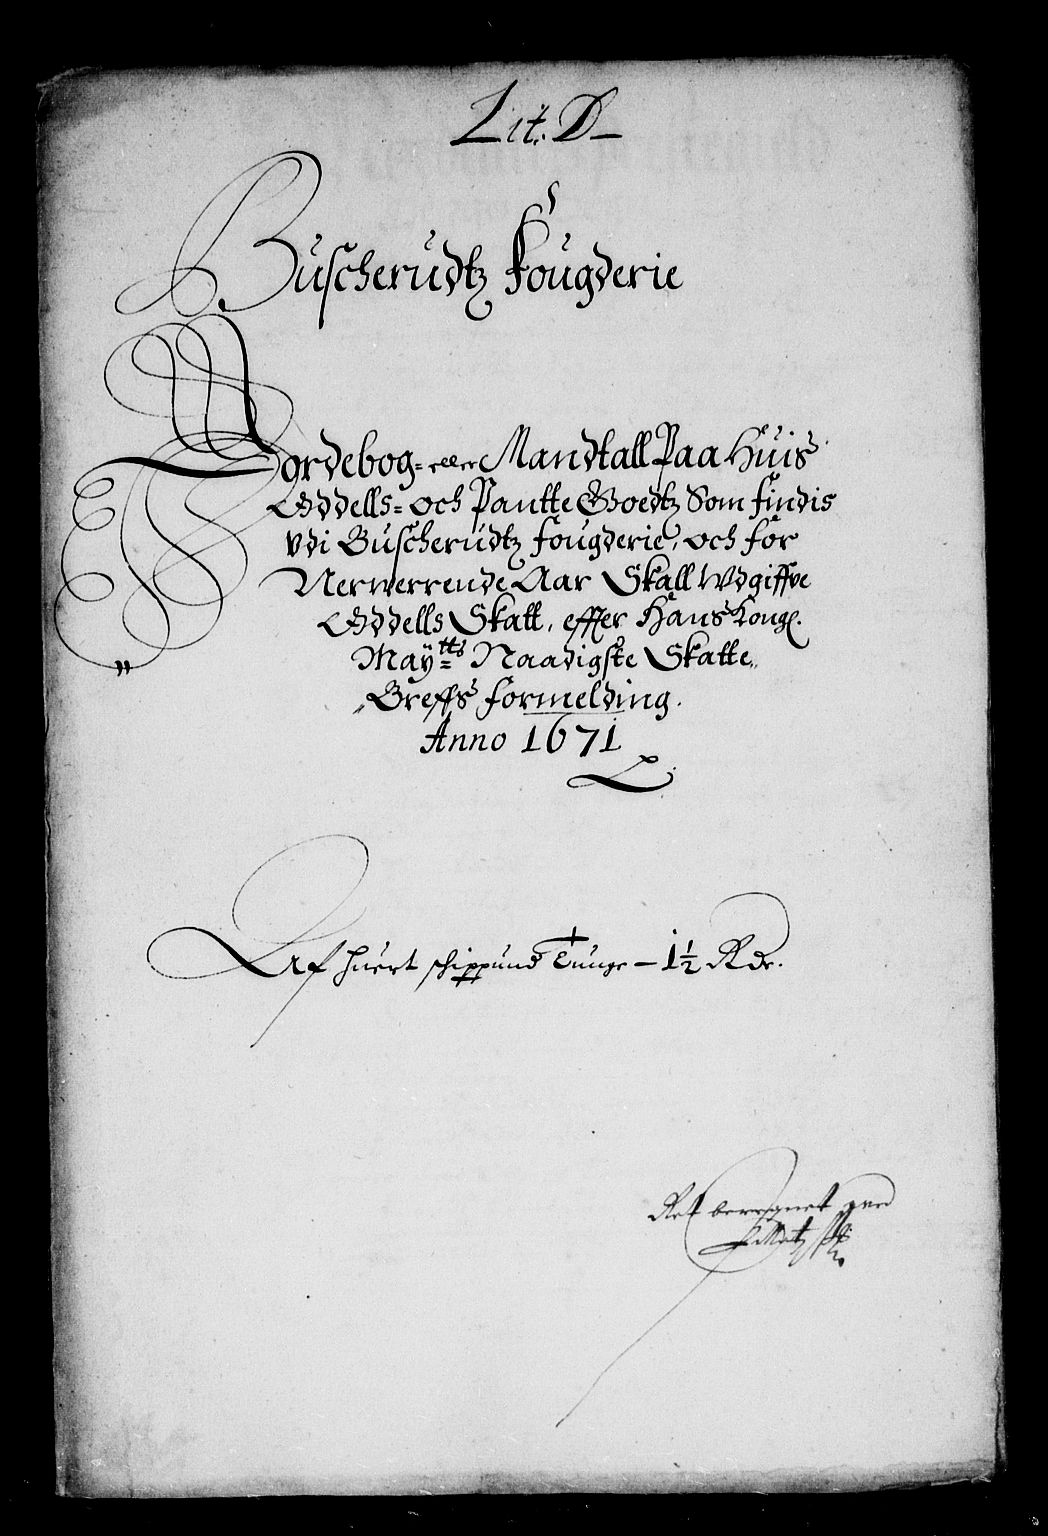 Lit. D
Buscherudtz Fougderie
Jordebog= eller Mandtall Paa Huis
Oddells= och Pantte Goedtz Som findis
vdi Buscherudtz fougderie, och för
Nerwerrende Aar Skall Wdgiffve
Oddells Skatt, effter Hans Kongl.
Maytts Naadigste Skatte,,
Breffs formelding.
Anno 1671
Af huert schippund Tunge — 1½ Rdr.
Ret beregnet